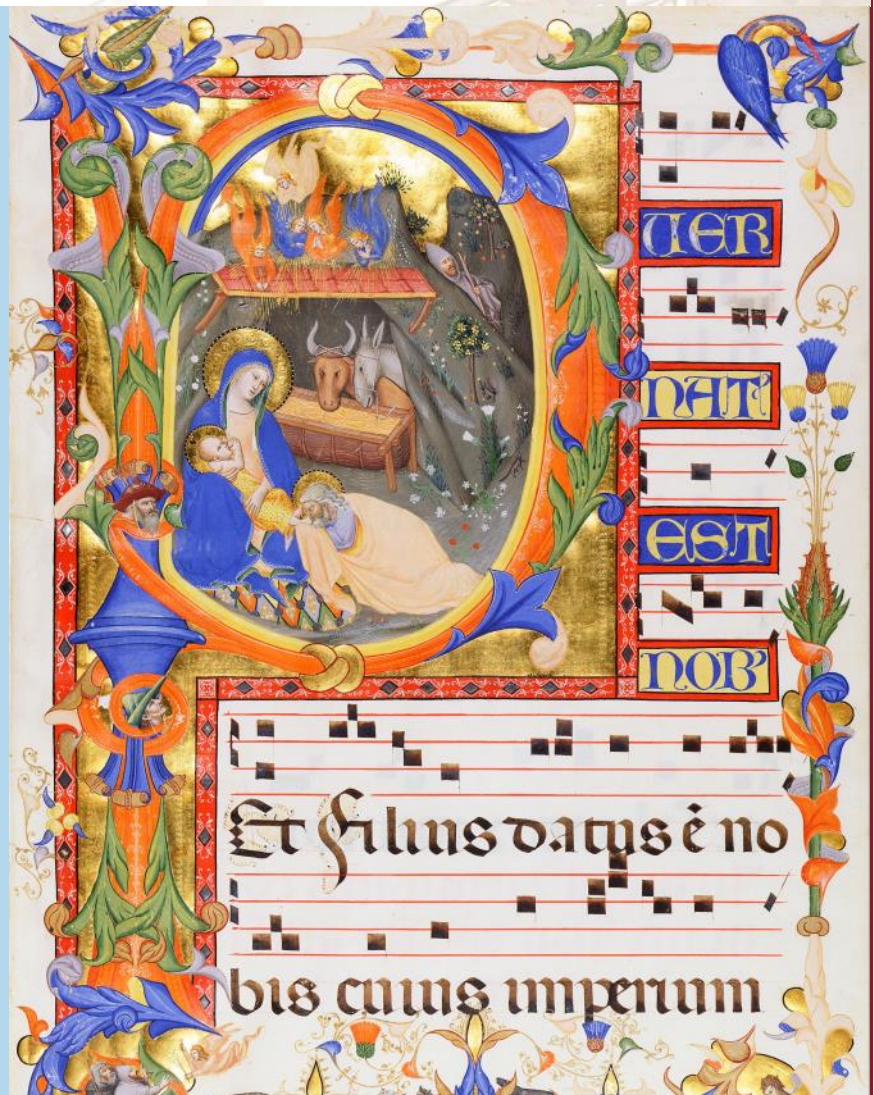 P
UER
NAT'
EST
NOB'
Et Filius datus ē no
bis cuius imperium